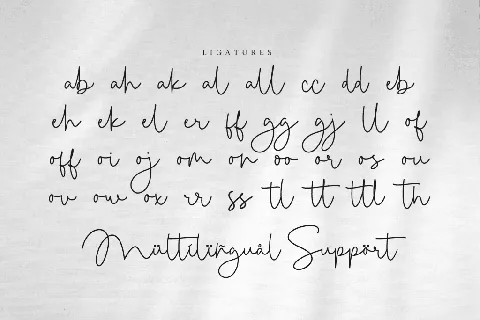 LIGATURES
ab ah ak al all cc dd eb
eh ek el er ff gg gj ll of
off oi oj om on oo or os ou
ov ow ox rr ss tl tt ttl th
Mültilïñguâl Suppört